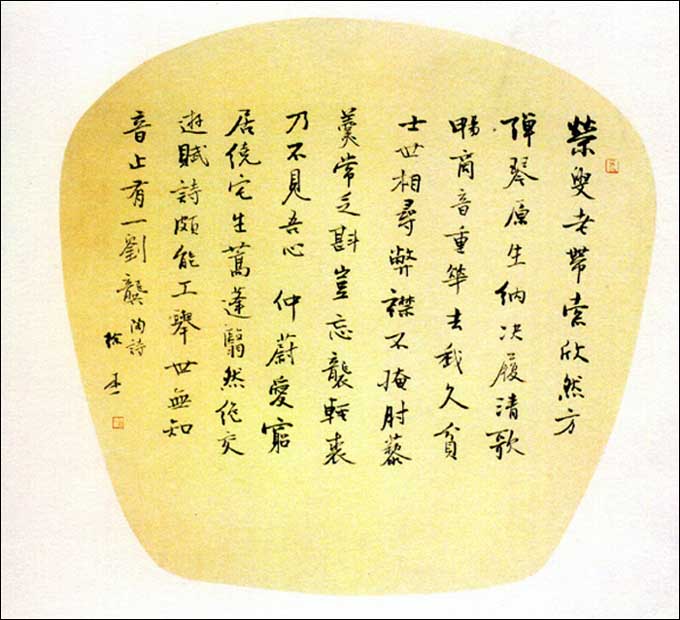 榮叟老帶索欣然方
彈琴原生納决履清歌
暢商音重華去我久貧
士世相尋弊襟不掩肘藜
羹常乏斟豈忘襲輕裘
乃不見吾心 仲蔚愛窮
居繞宅生蒿蓬翳然絶交
遊賦詩頗能工舉世無知
音止有一劉龔 陶詩